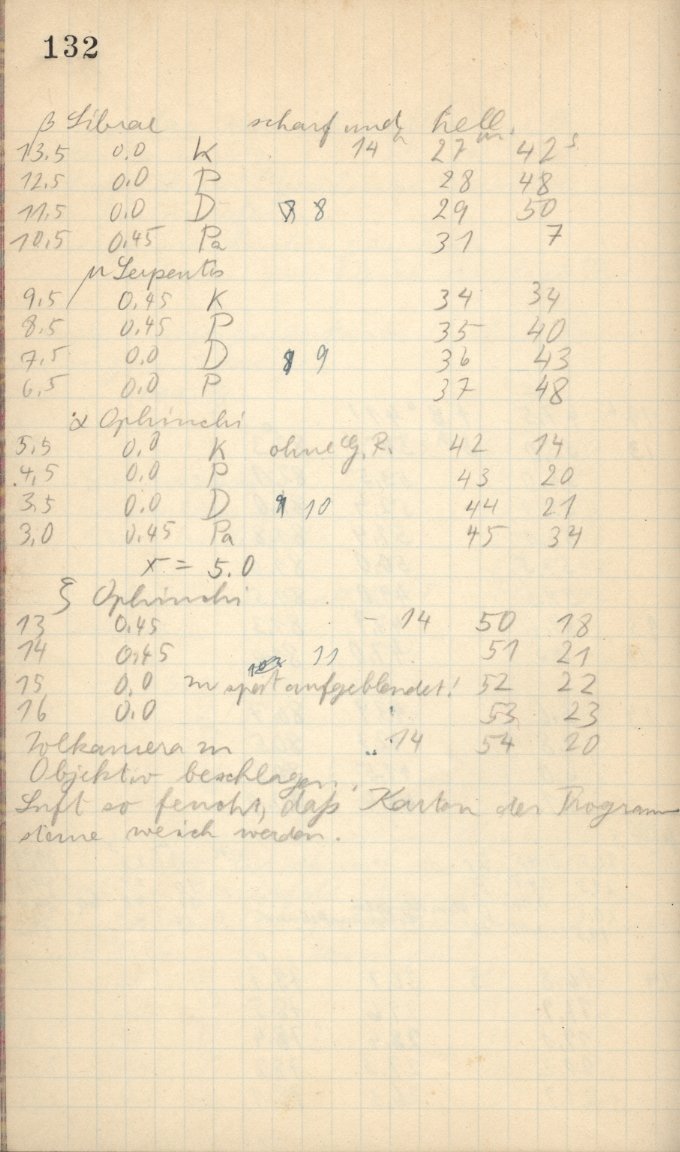 132
β Librae scharf und hell.
13,5 0,0 K 14h 27m 42s
12,5 0,0 P 28 48
11,5 0,0 D 8 29 50
10,5 0,45 Pa 31 7
μ Serpentis
9,5 0,45 K 34 34
8,5 0,45 P 35 40
7,5 0,0 D 9 36 43
6,5 0,0 P 37 48
α Ophiuchi
5,5 0,0 K ohne G. R. 42 14
4,5 0,0 P 43 20
3,5 0,0 D 10 44 21
3,0 0,45 Pa 45 34
x = 5.0
ξ Ophiuchi
13 0,45 – 14 50 18
14 0,45 11 51 21
15 0,0 zu spät aufgeblendet! 52 22
16 0,0 53 23
Polkamera zu 14 54 20
Objektiv beschlagen.
Luft so feucht, daß Karton der Programm
sterne weich werden.